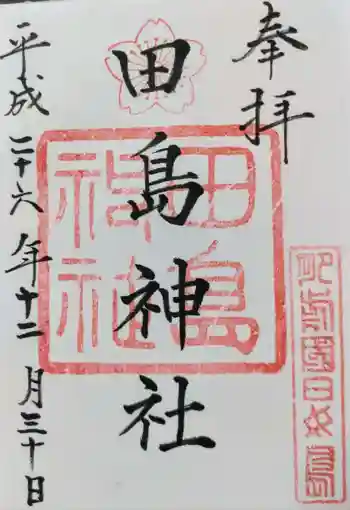 奉拝
田島神社
平成二十六年十二月三十日
田島
神社